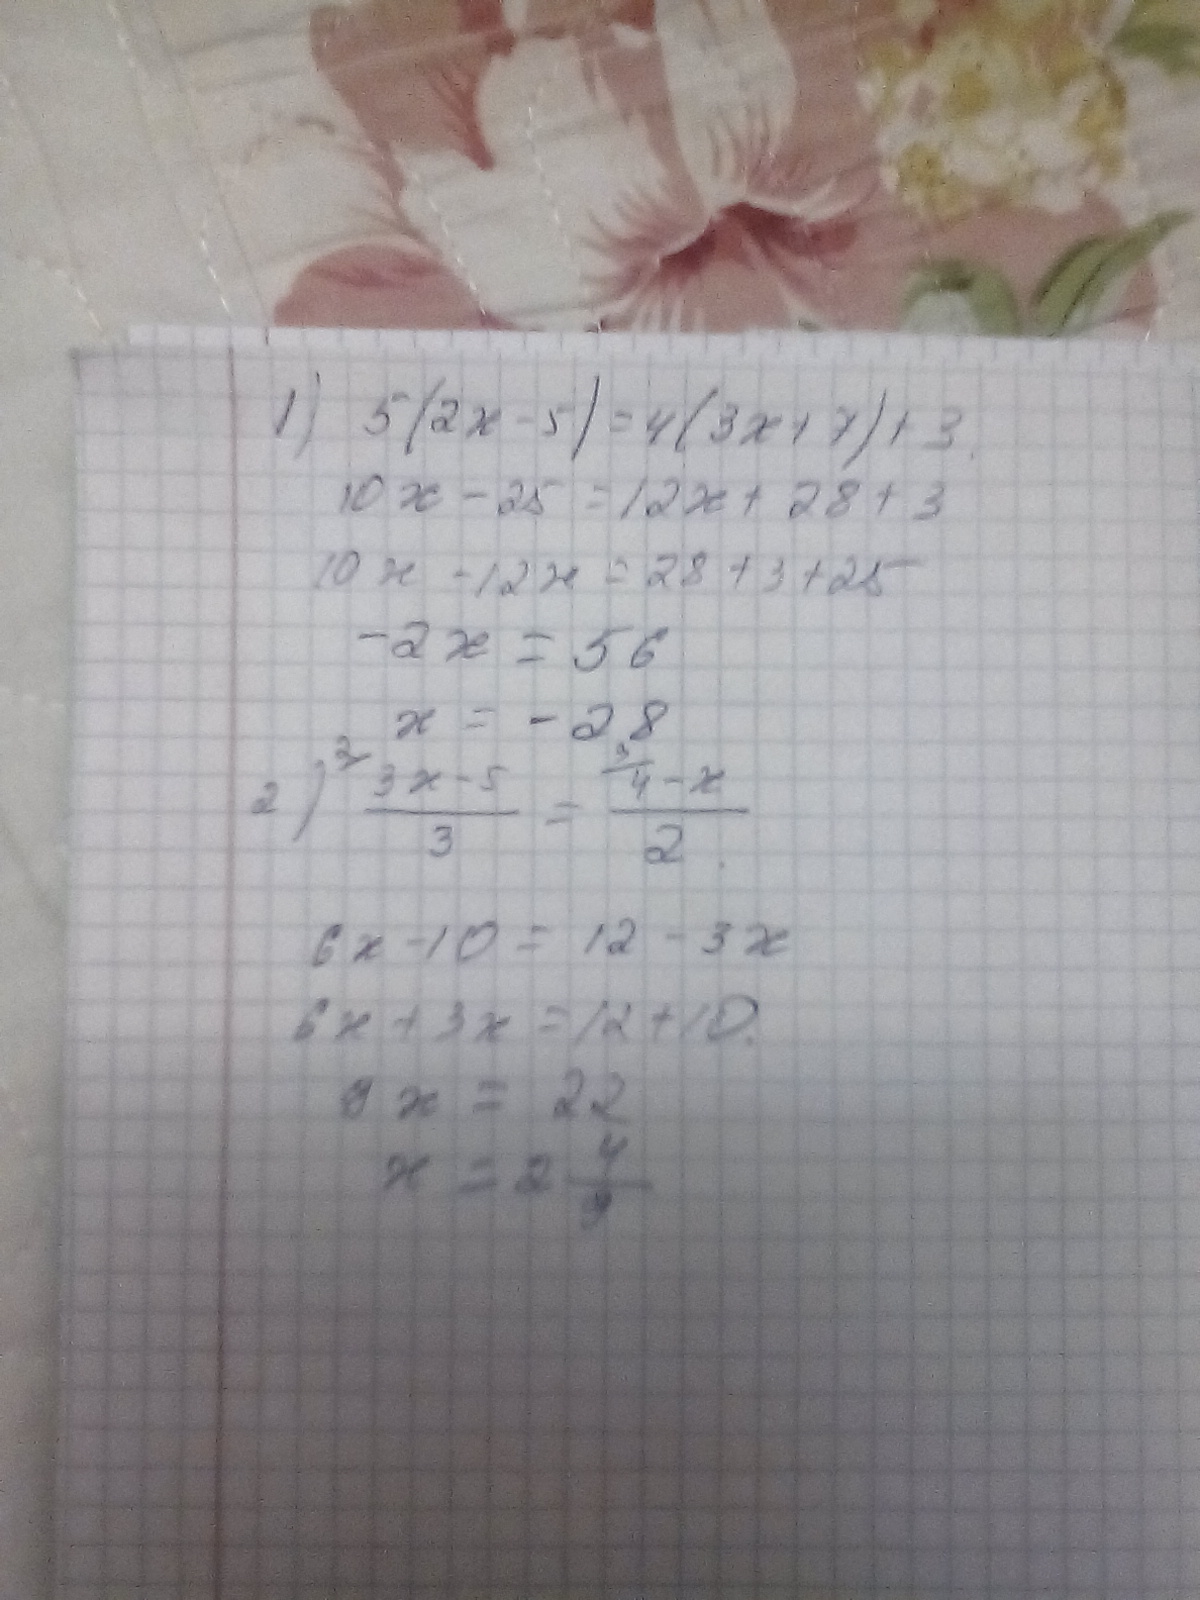 1) 5(2x-5)=4(3x+7)+3.
10x-25=12x+28+3
10x-12x=28+3+25
-2x=56
x=-28
2) ²/ (3x-5)/3 = ³/ (4-x)/2.
6x-10=12-3x
6x+3x=12+10.
9x=22
x=2 4/9